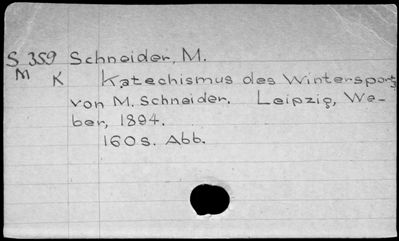 S 359 Schneider, M.
M K Katechismus des Wintersports
von M. Schneider. Leipzig, We-
ber, 1894.
160 s. Abb.